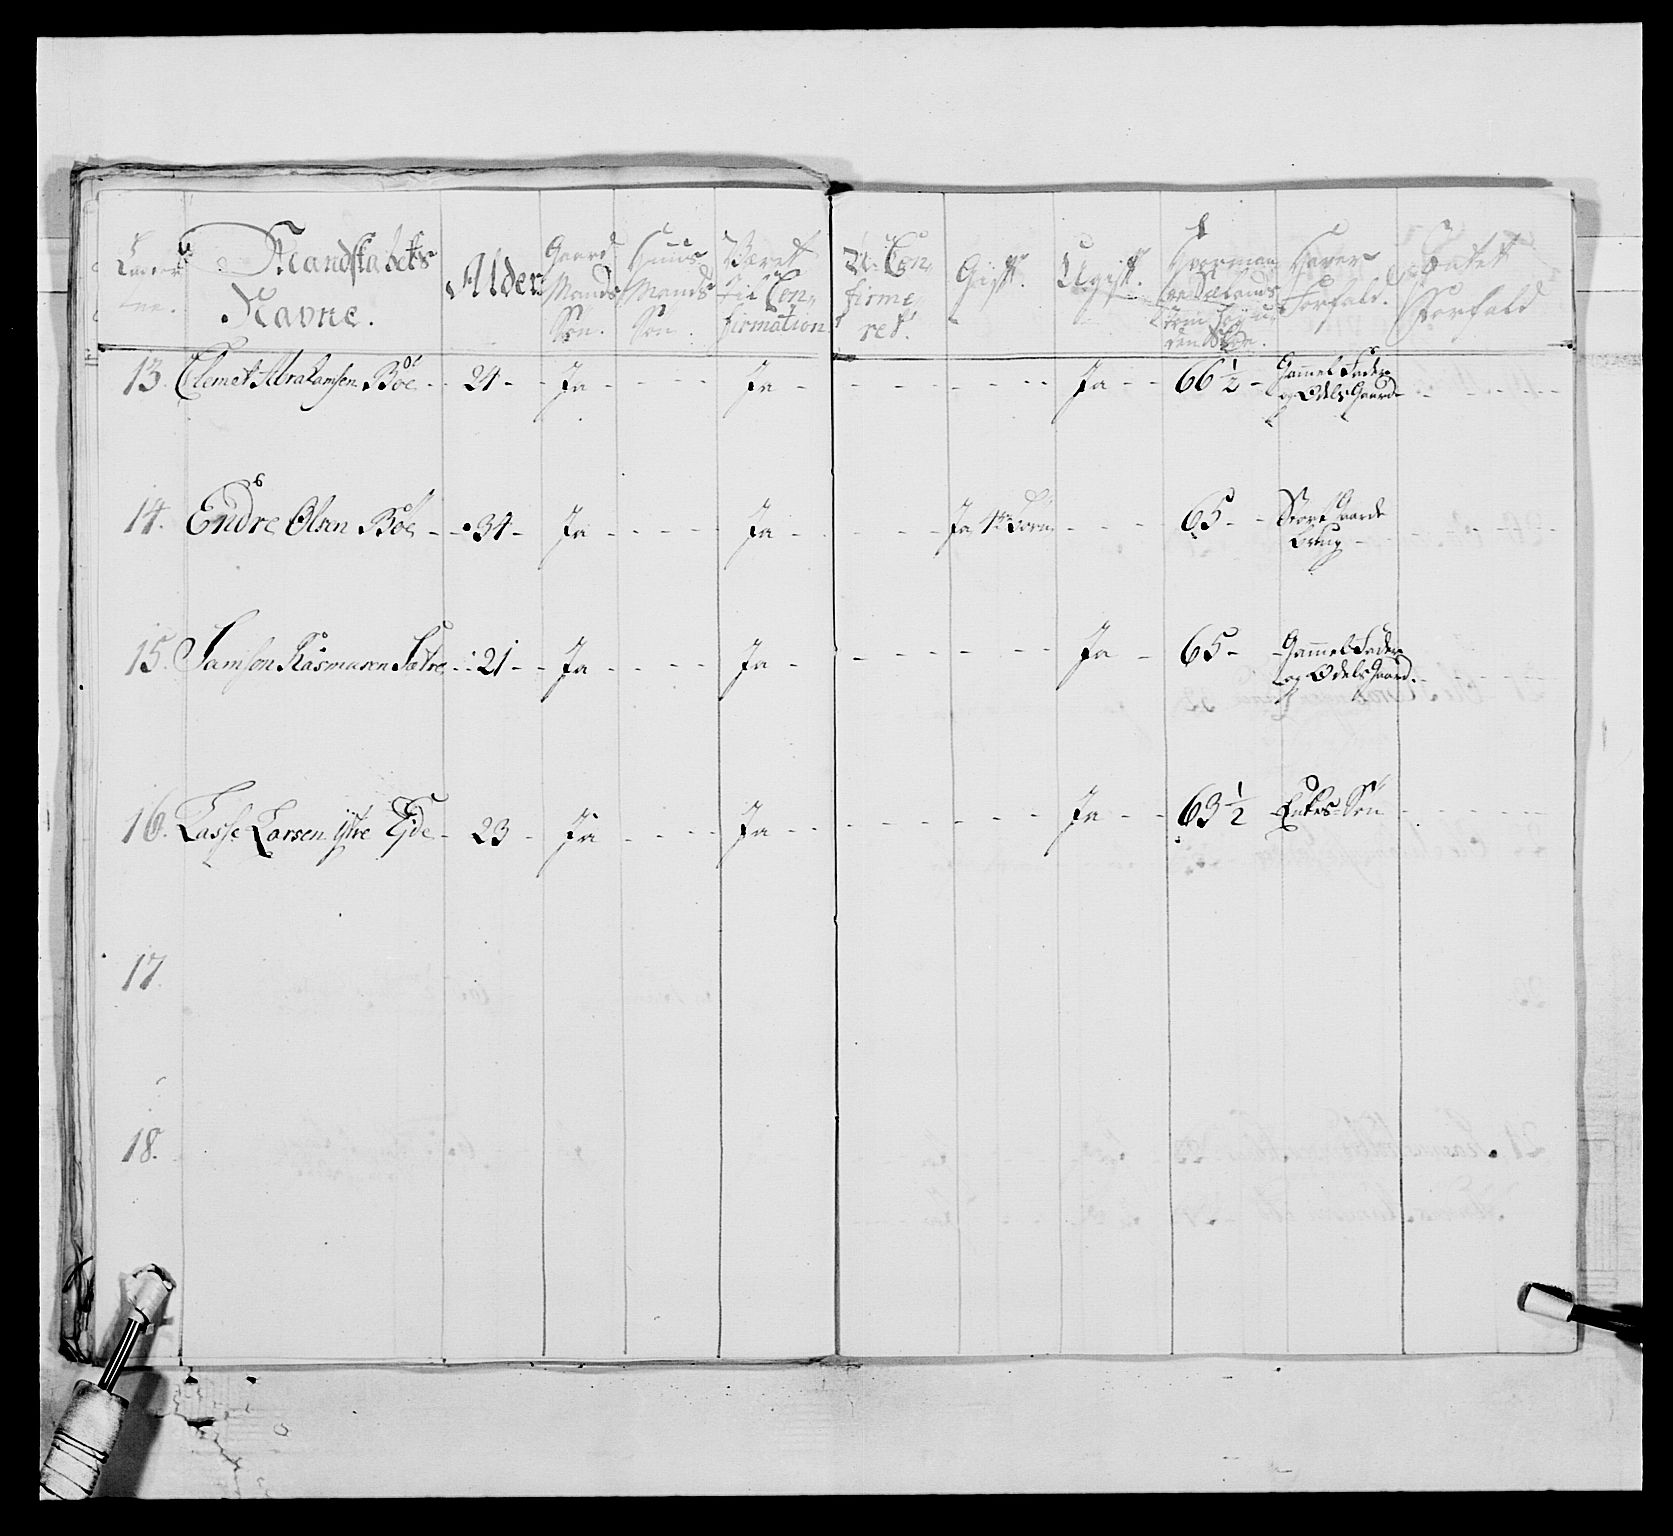 Mandskabets
Navne.
Alder
Gaard
Mands
Søn.
Huus
Mands
Søn.
Været
til Con,
firmation
U-Con,
firme,
ret.
Gift.
Ugift.
Haver
Forfald.
Intet
Forfald
13. Clemet Abrahamsen Böe - - 24 - - Ja - - - - Ja - - - - - - Ja - - 66 1/2 - Gammel Fader
og Odels Gaard
14. Endre Olsen Böe - - 34 - Ja - - - - Ja - - - - Ja, 1 Barn - - - 65 - - Stort Gaards
Brug - - -
15. Samson Rasmusen Sætre - 21 - - Ja - - - - Ja - - - - - - Ja - 65 - Gammel Fader
og Odels Gaard
16. Lasse Larsen ystre Eide - 23 - Ja - - - - Ja - - - - - - Ja - - 63 1/2 Enkes Søn - - - -
17.
18.